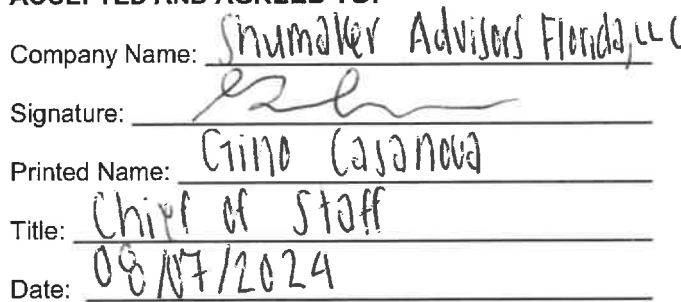 ACCEPTED AND AGREED TO:
Company Name: Shumaker Advisors Florida, LLC
Signature:
Printed Name: Gino Casanova
Title: Chief of Staff
Date: 08/07/2024